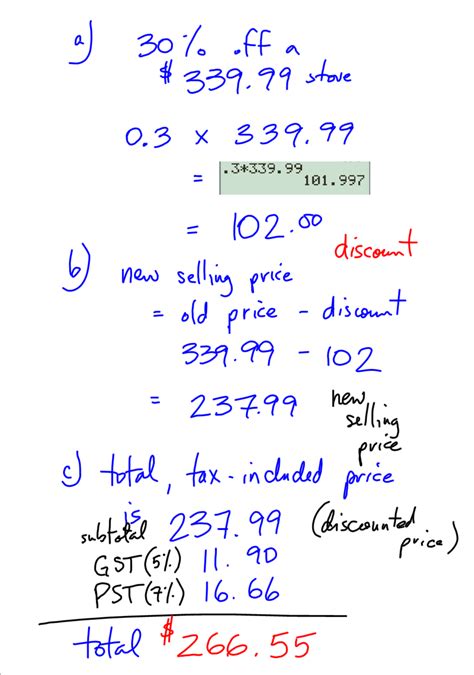 a) 30% off a
$339.99 stove
0.3 x 339.99
= .3*339.99
101.997
= 102.00
discount
b) new selling price
= old price - discount
339.99 - 102
= 237.99 new selling price
c) total, tax-included price
is
subtotal 237.99 (discounted price)
GST (5%) 11.90
PST (7%) 16.66
total $266.55